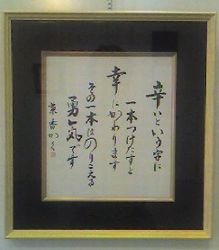 辛いという字に
一本つけたすと
幸にかわります
その一本はのりこえる
勇気です